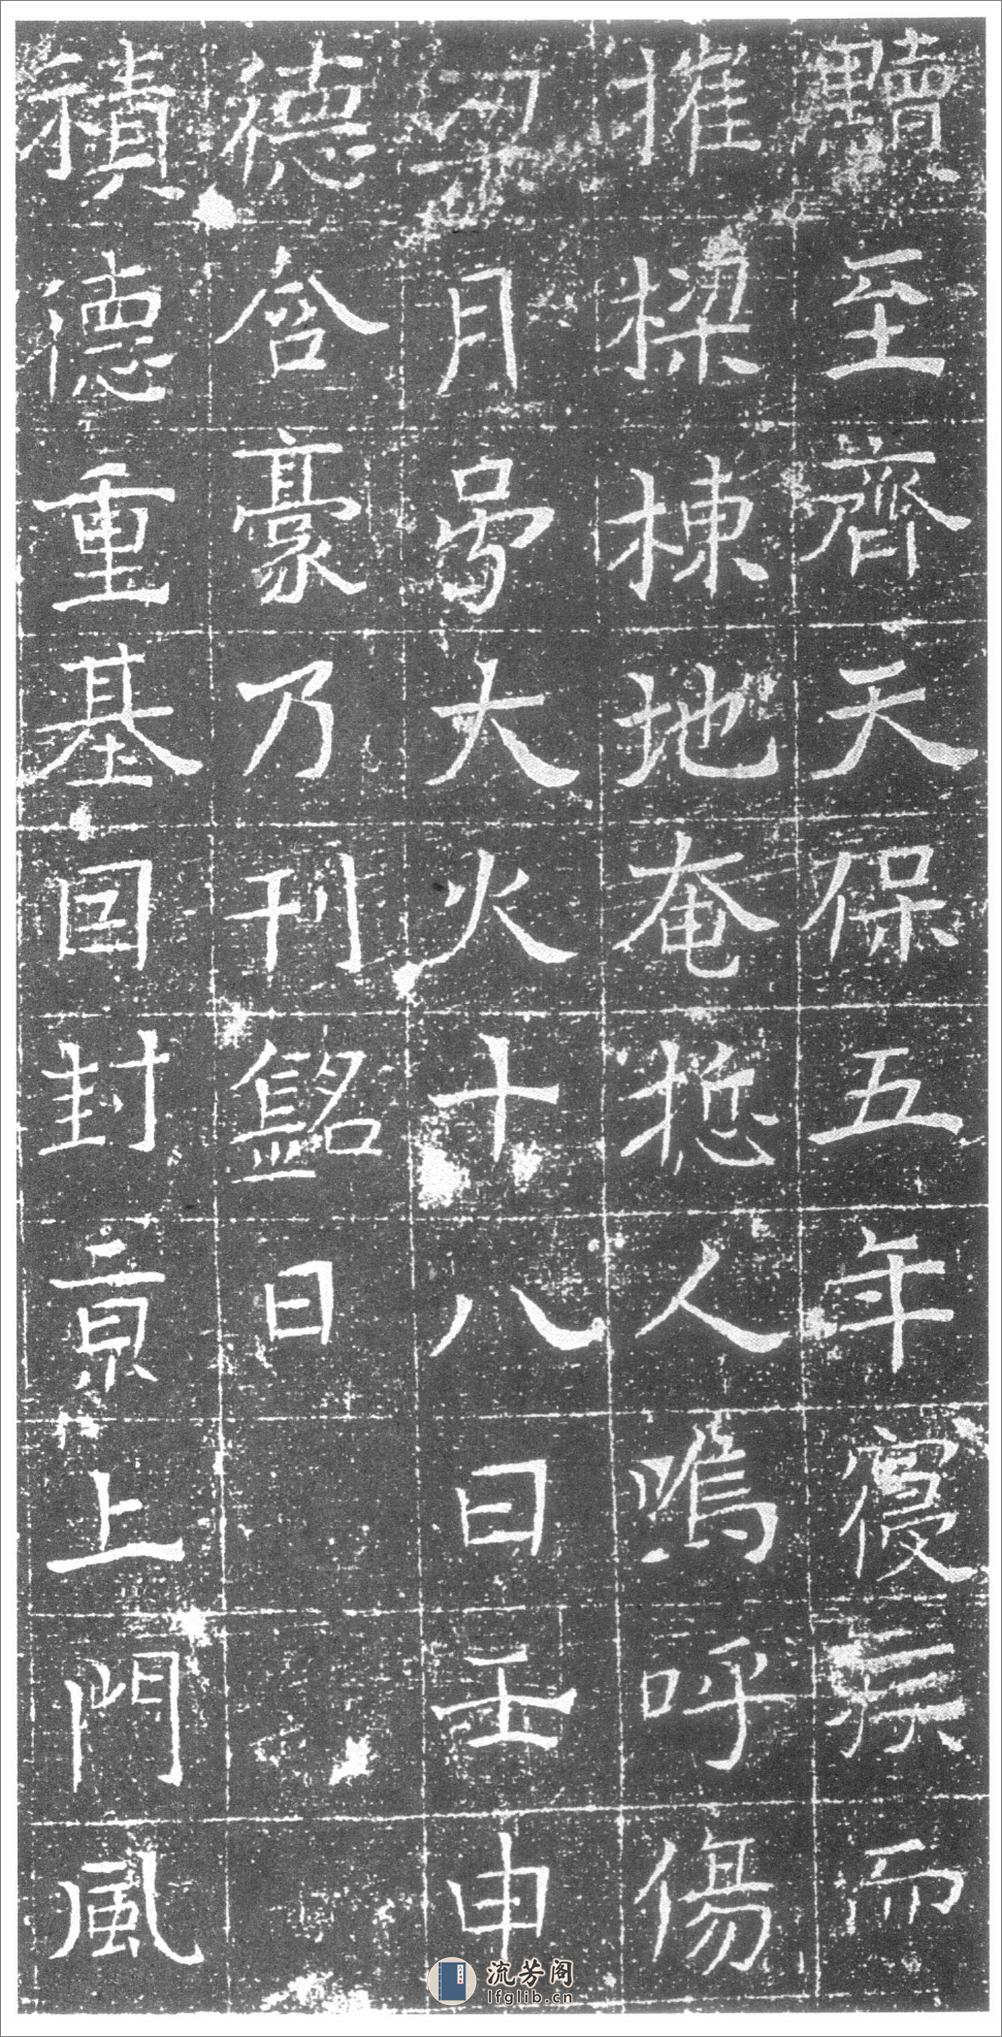 黷至齊天保五年寢疾而
摧樑棟地奄悊人嗚呼傷
月号大火十八日壬申
德含豪乃刊銘曰
積德重基囙封亰上門風
流芳阁
lfglib.cn